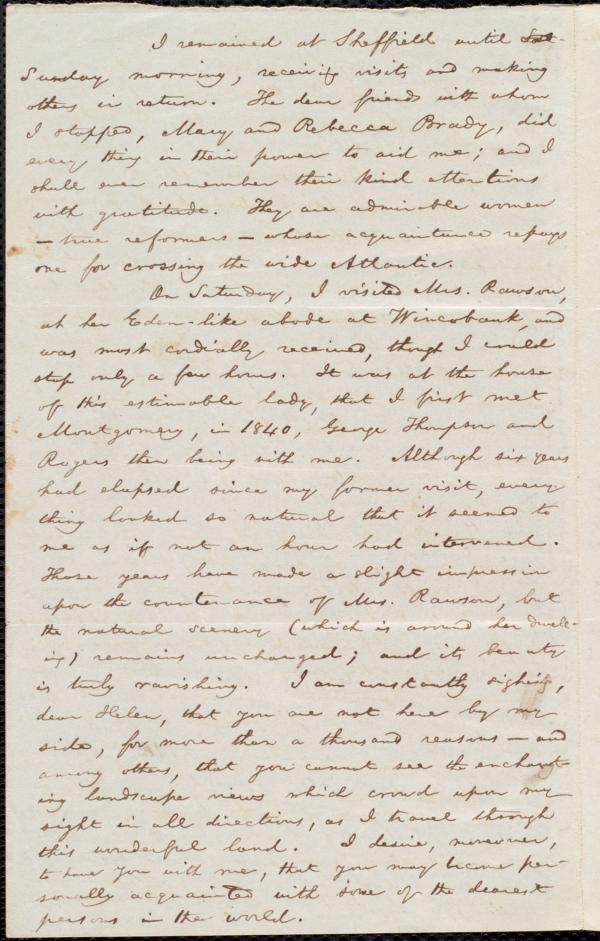 I remained at Sheffield until Sat-
Sunday morning, receiving visits and making
others in return. The dear friends with whom
I stopped, Mary and Rebecca Brady, did
every thing in their power to aid me; and I
shall ever remember their kind attentions
with gratitude. They are admirable women
— true reformers — whose acquaintance repays
one for crossing the wide Atlantic.
On Saturday, I visited Mrs. Rawson,
at her Eden-like abode at Wincobank, and
was most cordially received, though I could
stop only a few hours. It was at the house
of this estimable lady, that I first met
Montgomery, in 1840, George Thompson and
Rogers then being with me. Although six years
had elapsed since my former visit, every
thing looked so natural that it seemed to
me as if not an hour had intervened.
Those years have made a slight impression
upon the countenance of Mrs. Rawson, but
the natural scenery (which is around her dwell-
ing) remains unchanged; and its beauty
is truly ravishing. I am constantly sighing,
dear Helen, that you are not here by my
side, for more than a thousand reasons — and
among others, that you cannot see the enchant-
ing landscape views which crowd upon my
sight in all directions, as I travel through
this wonderful land. I desire, moreover,
to have you with me, that you may become per-
sonally acquainted with some of the dearest
persons in the world.